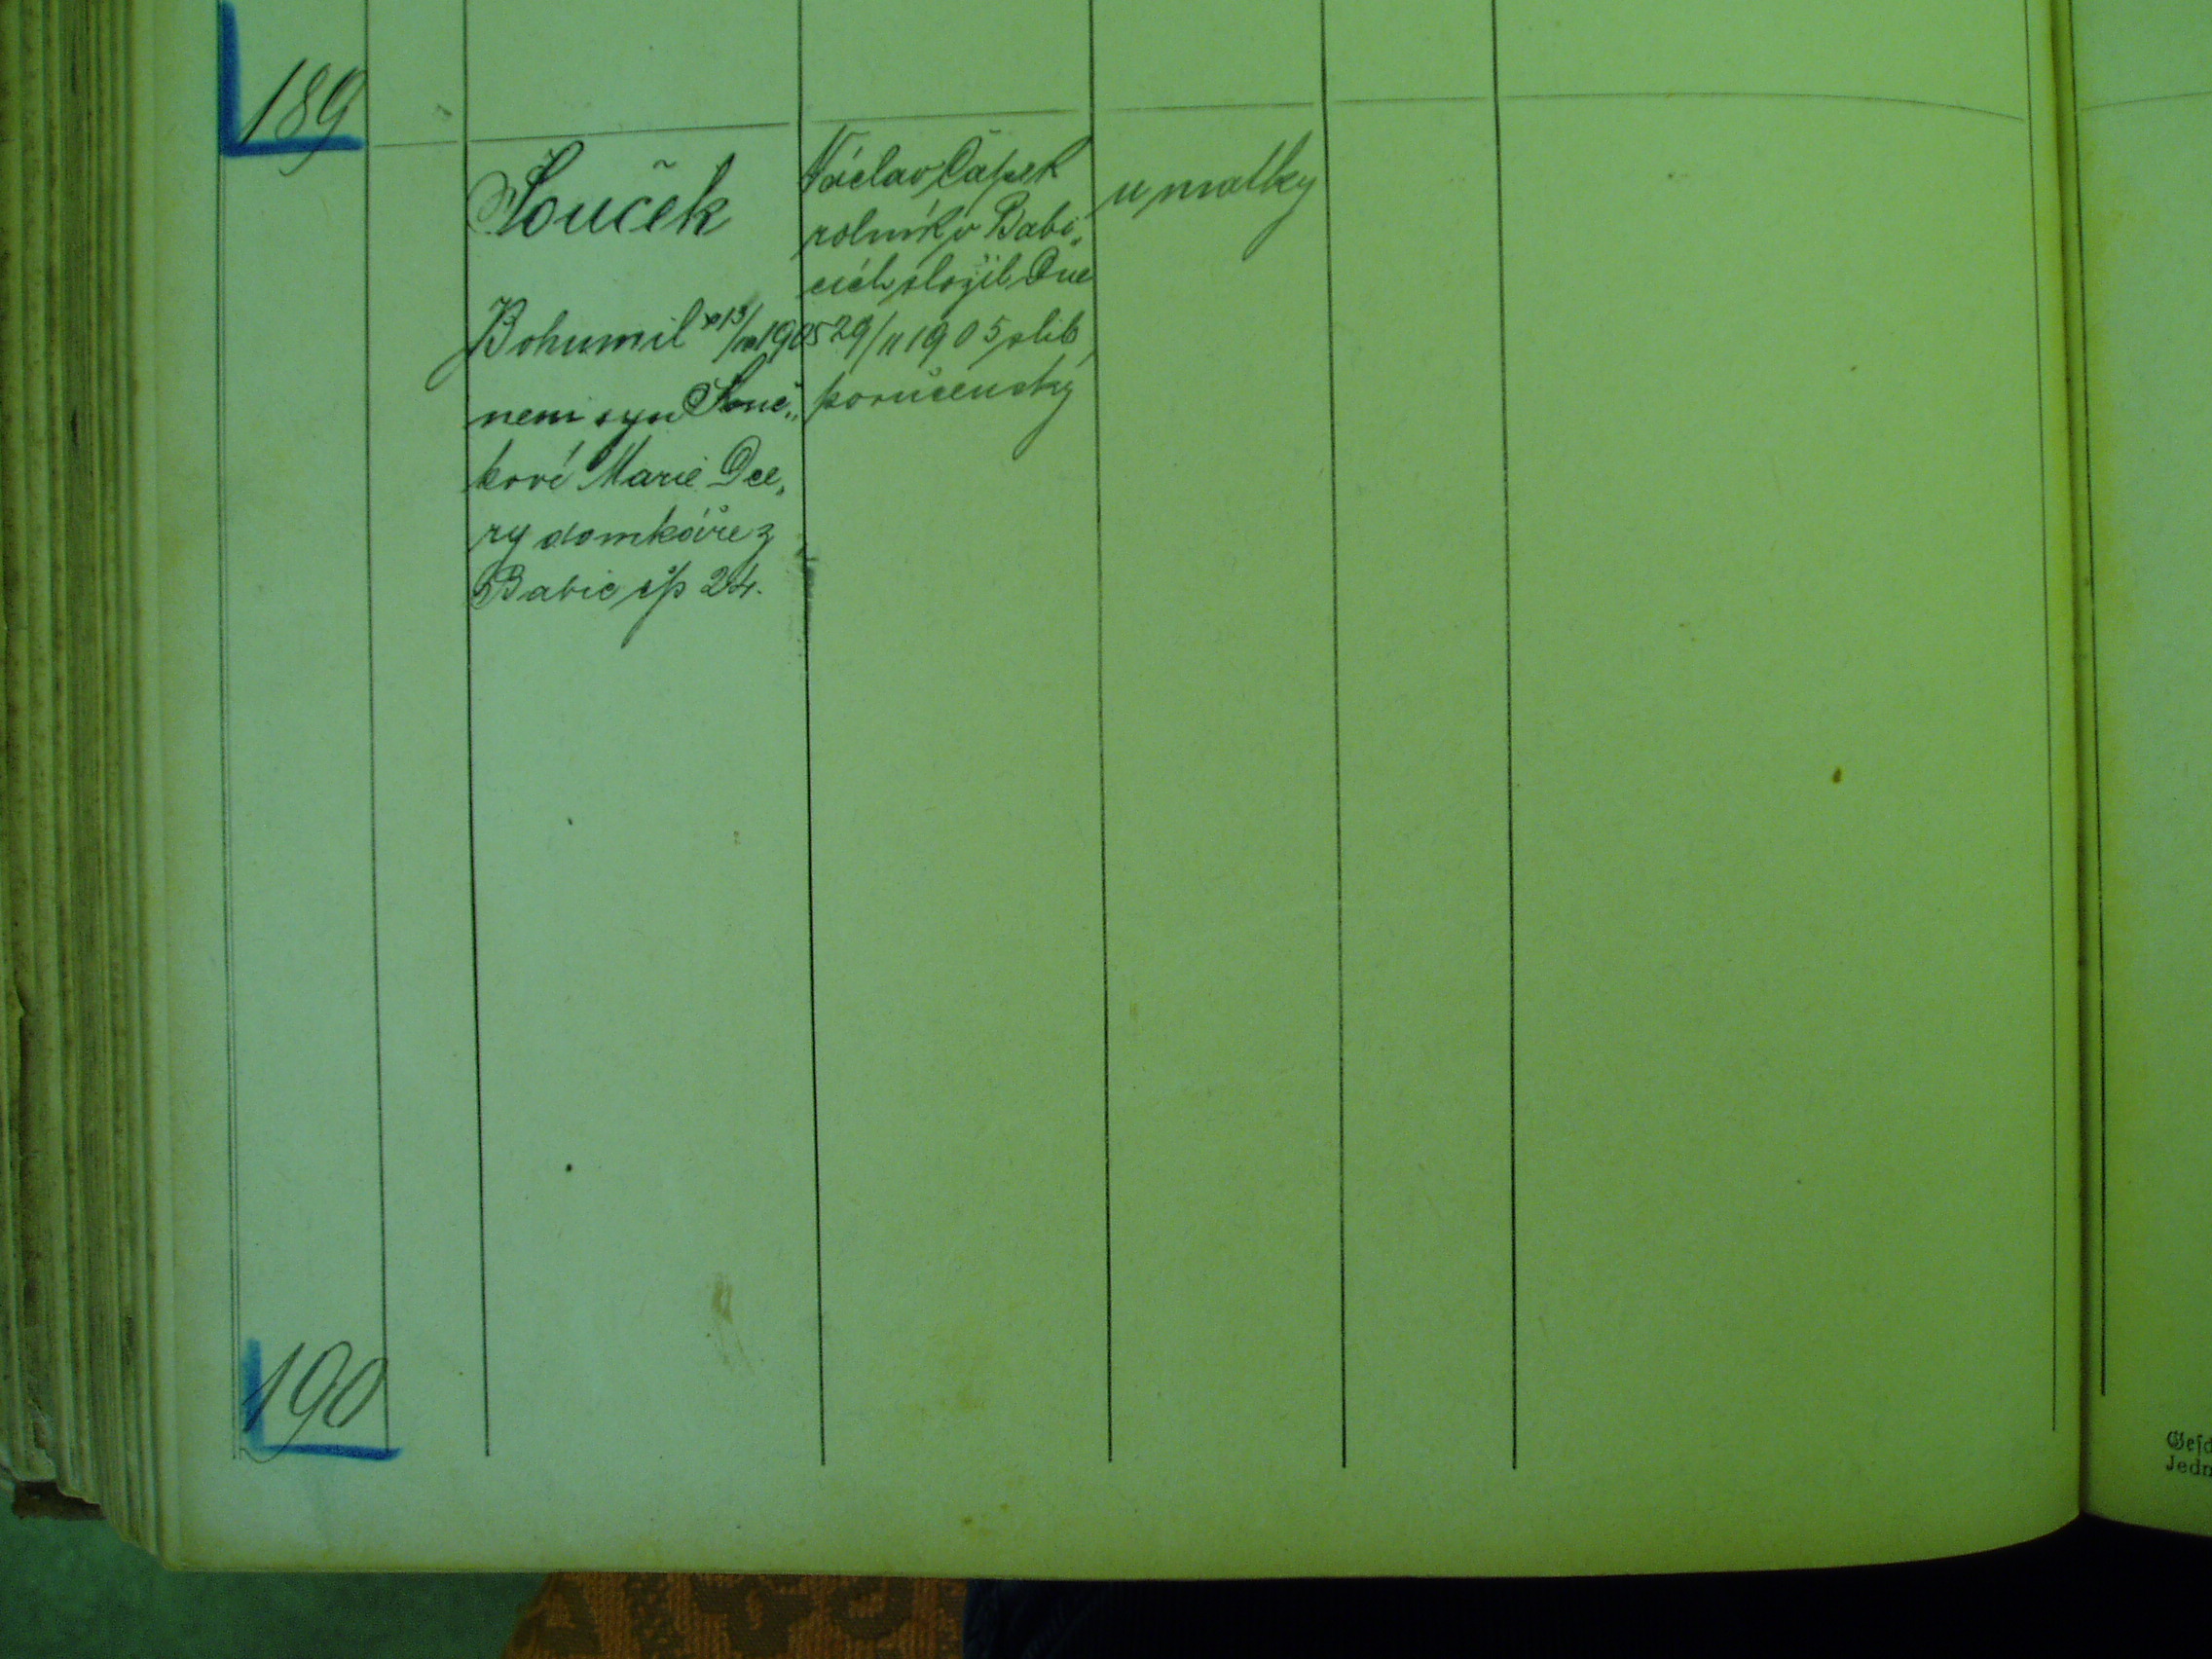 189
Souček
Bohumil *13/10 1905
nem syn Souč„
kové Marie Dce„
ry domkáře z
Babic čp 24.
Václav Čapek
rolník v Babi„
cích složil Dne
29/11 1905 slib
poručenský
u matky
190
Gesd
Jedn